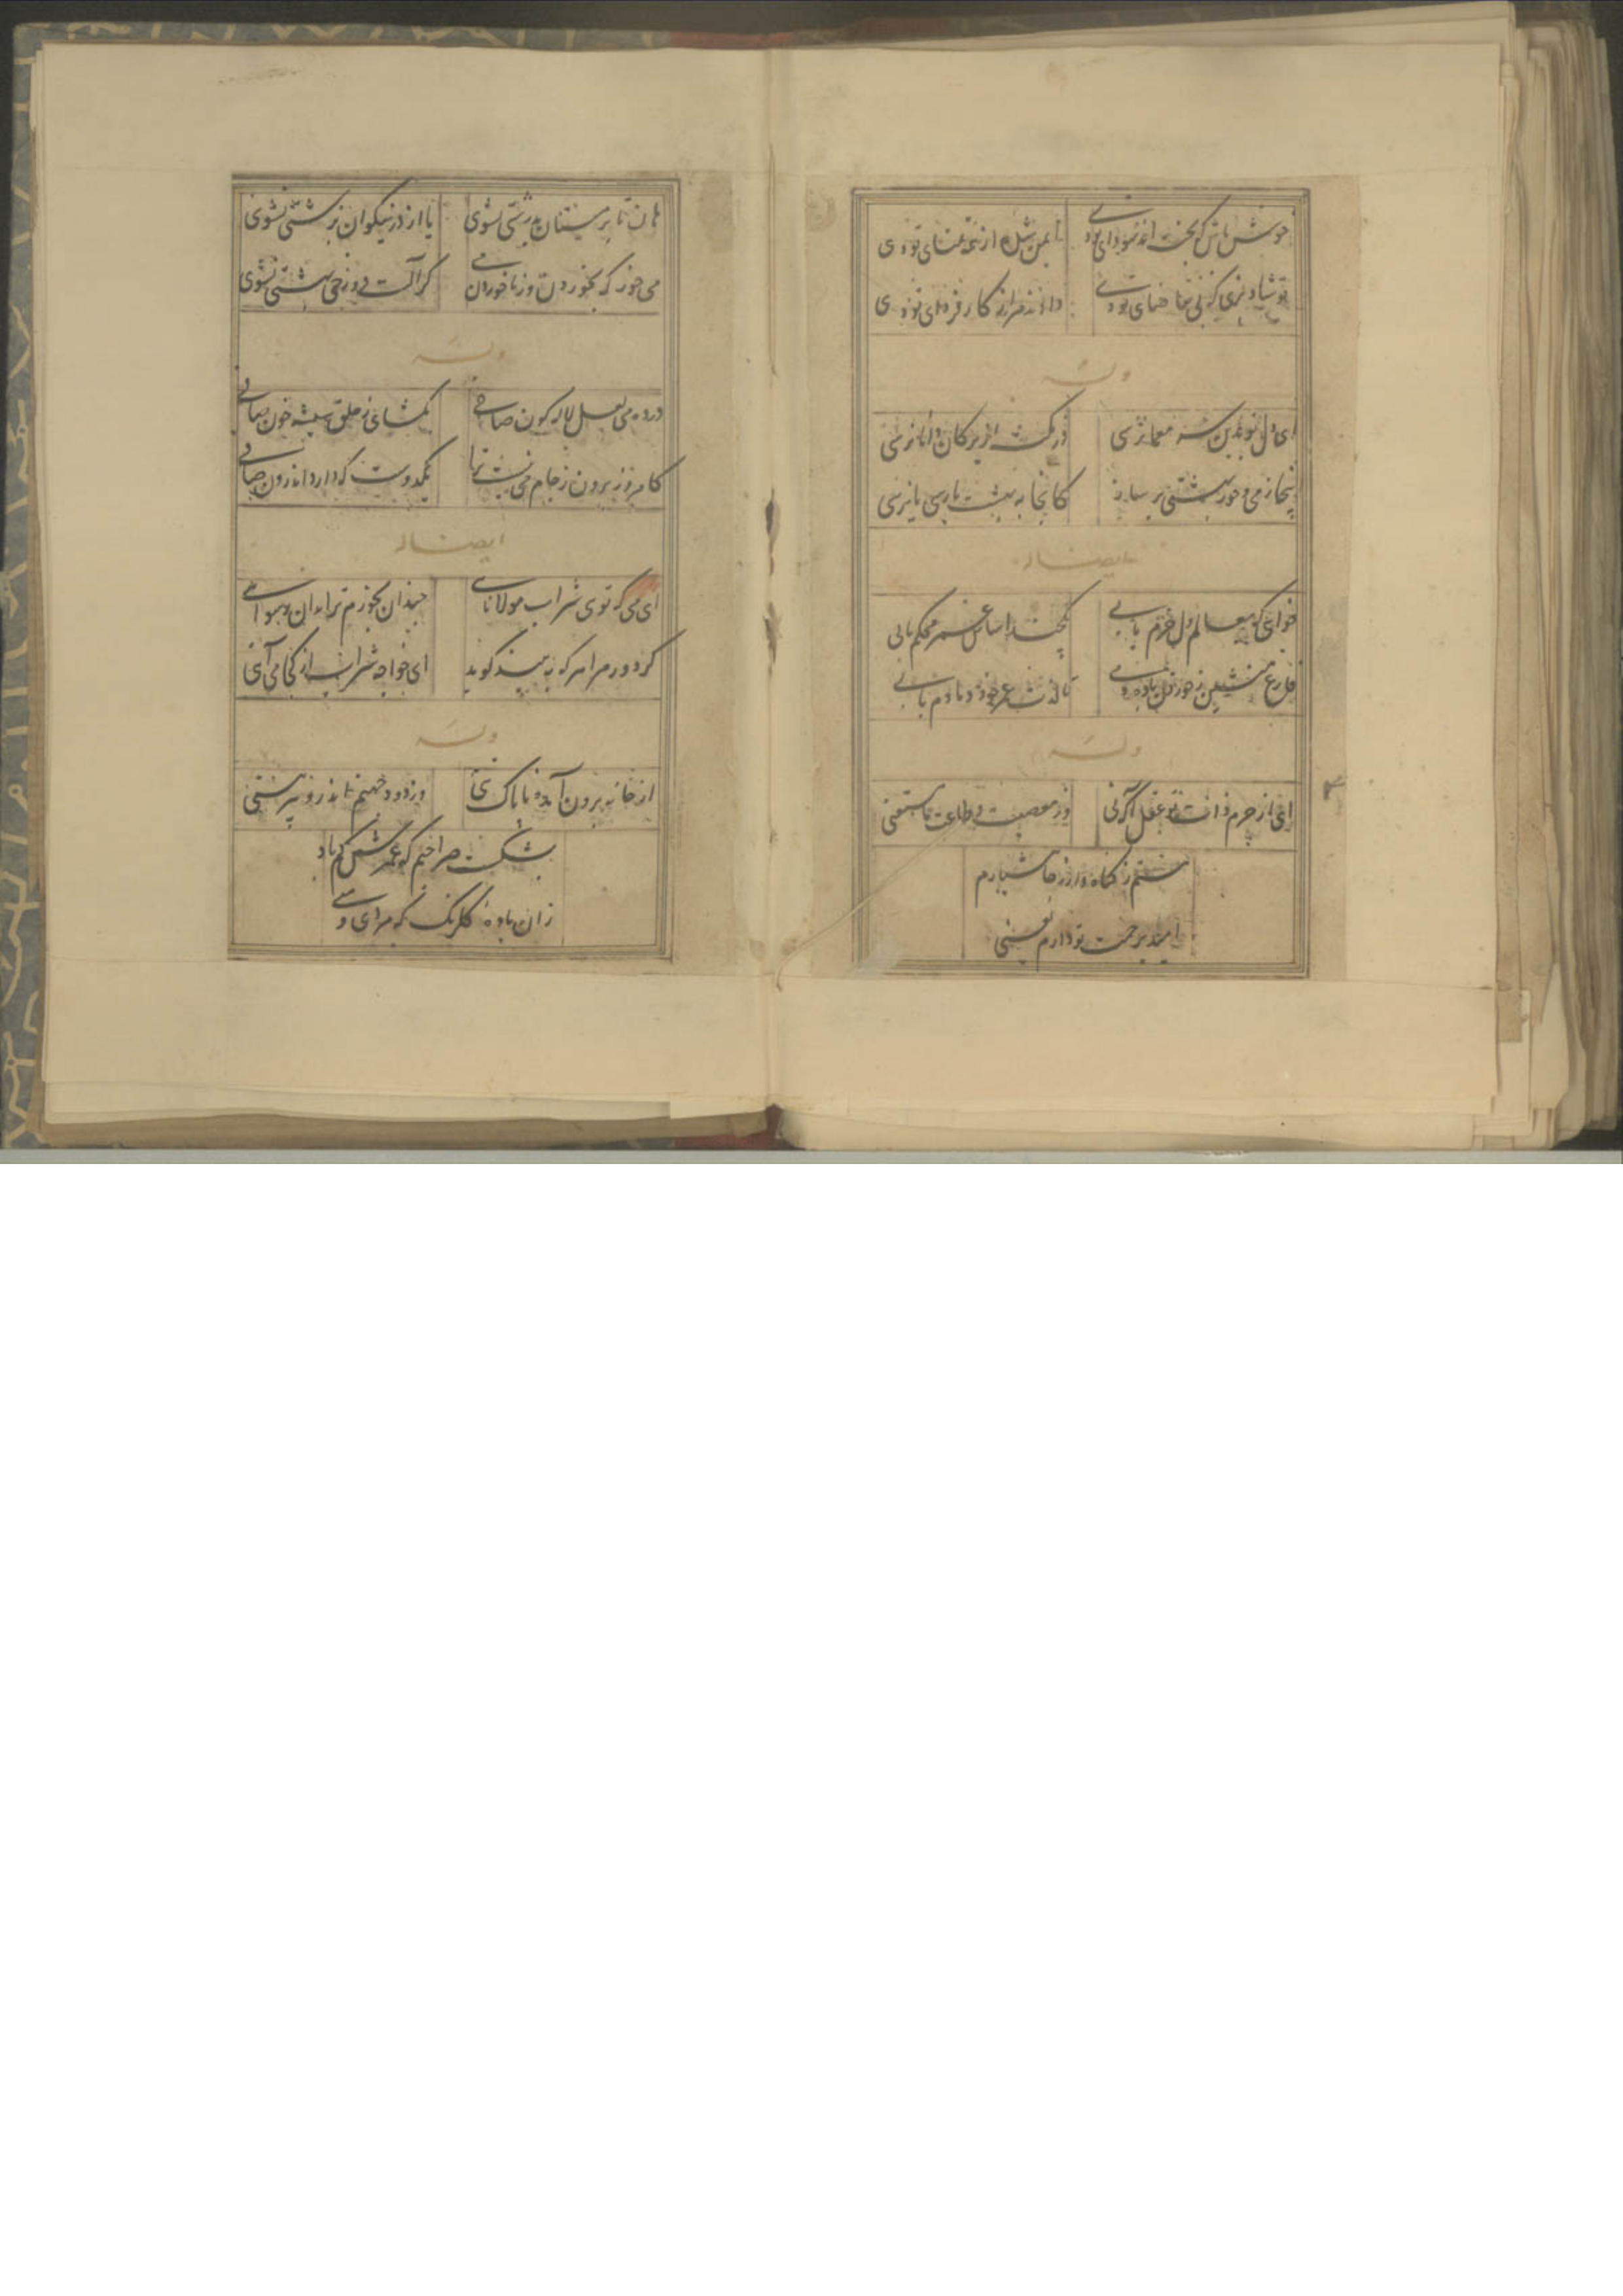 خوش باش که پخته‌اند سودای تو دی
ایمن شده از همه تمنای تو دی
تو شاد بزی که بی تقاضای تو دی
دادند قرار کار فردای تو دی
وله
ای دل تو بدین سر معما نرسی
در نکته زیرکان دانا نرسی
اینجا ز می و حور بهشتی بر ساز
کانجا به بهشت یا رسی یا نرسی
ایضا له
خواهی که به عالم دل خرم یابی
یکچند اساس عمر محکم یابی
فارغ منشین ز خوردن باده دمی
تا لذت عمر خود دمادم یابی
وله
ای از حرم ذات تو عقل آگه نی
وز معصیت و طاعت ما مستغنی
مستم ز گناه و از رجا هشیارم
امید برحمت تو دارم یعنی
هان تا بر مستان بدرشتی نشوی
یا از در نیکوان بزشتی نشوی
می خور که بخوردن و بناخوردن می
گر آلت دوزخی بهشتی نشوی
وله
در ده می لعل لاله گون صافی
بگشای ز حلق شیشه خون صافی
کامروز برون ز جام می نیست مرا
یکدوست که دارد اندرون صافی
ایضا له
ای می که توی شراب مولانائی
چندان بخورم ترا
کز دور مرا هر که ببیند گوید
ای خواجه شراب از کجا می آئی
وله
از خانه برون آمده ناپاک تنی
وز دود جهنم پیرهنی
بشکست صراحیم که عمرش کم باد
زان باده گلرنگ که